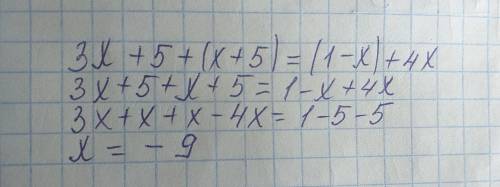 3x + 5 + (x + 5) = (1 - x) + 4x
3x + 5 + x + 5 = 1 - x + 4x
3x + x + x - 4x = 1 - 5 - 5
x = - 9